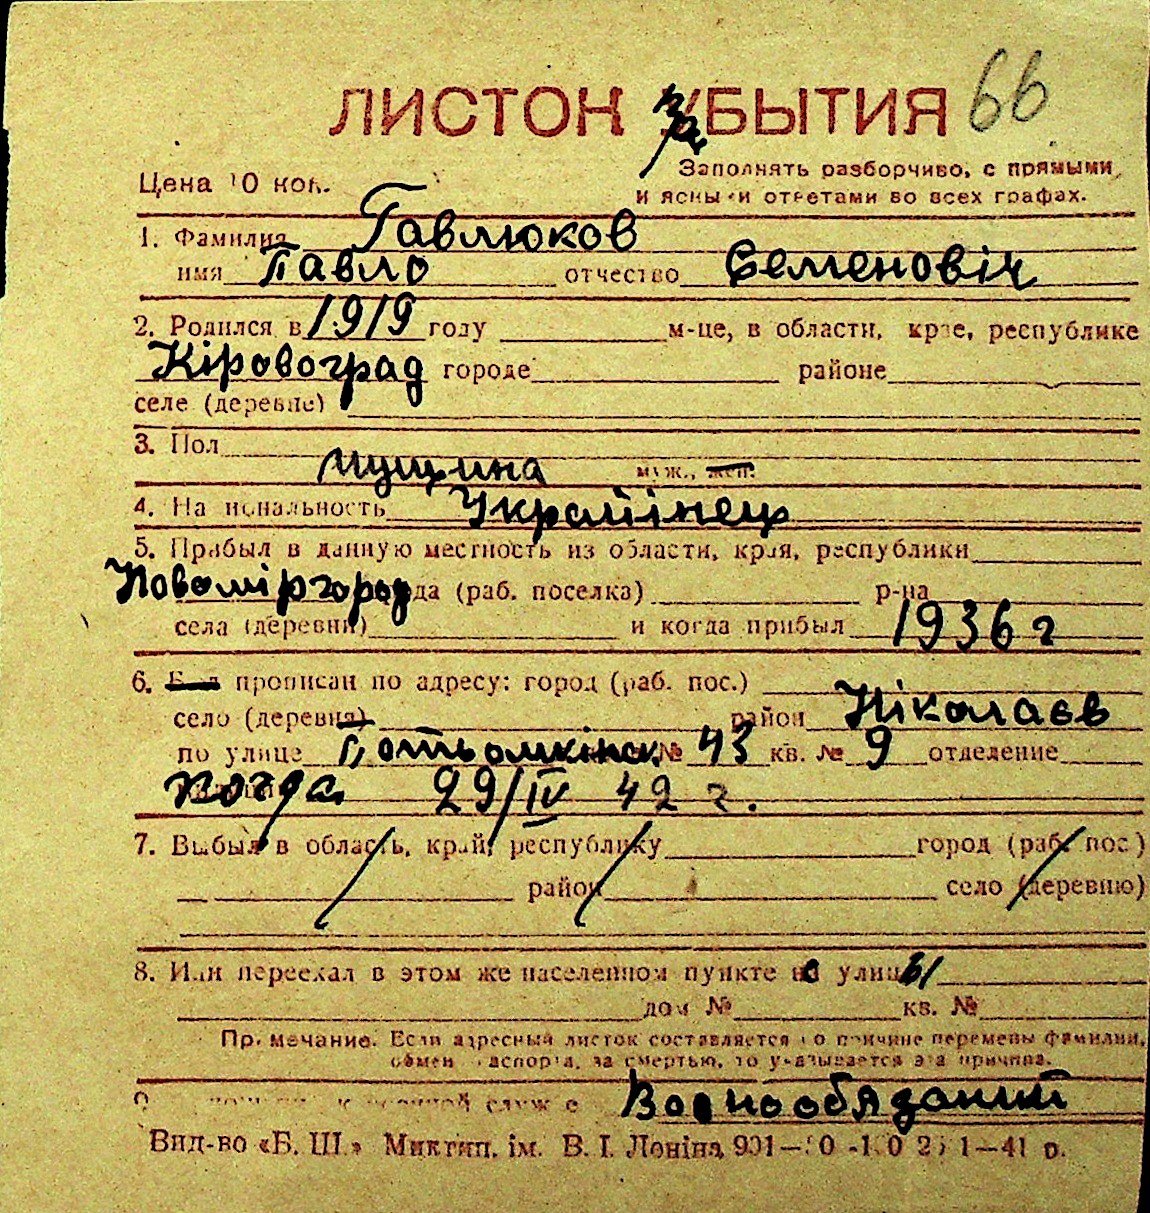 ЛИСТОН БЫТИЯ 66
Заполнять разборчиво, с прямыми
Цена 10 коп. и ясными ответами во всех графах.
1. Фамилия Гавлюков
имя Павло отчество Семеновіч
2. Родился в 1919 году м-це, в области, крае, республике
Кіровоград городе районе
селе (деревне)
3. Пол
мущина муж., жен.
4. Национальность Украйінець
5. Прибыл в данную местность из области, края, республики
Новоміргород да (раб. поселка) р-на
села (деревни) и когда прибыл 1936 г
6. Был прописан по адресу: город (раб. пос.)
село (деревня) район Ніколаєв
по улице Потьомкінск № 43 кв. № 9 отделение
когда 29/IV 42 г.
7. Выбыл в область, край, республику город (раб. пос.)
район село (деревню)
8. Или переехал в этом же населенном пункте на улицы
дом № кв. №
Примечание. Если адресный листок составляется по причине перемены фамилии,
обмен паспорта, за смертью, то указывается эта причина.
военной службе Военнообязаний
Вид-во «Б. Ш.» Миктип. ім. В. І. Леніна 901—41 р.